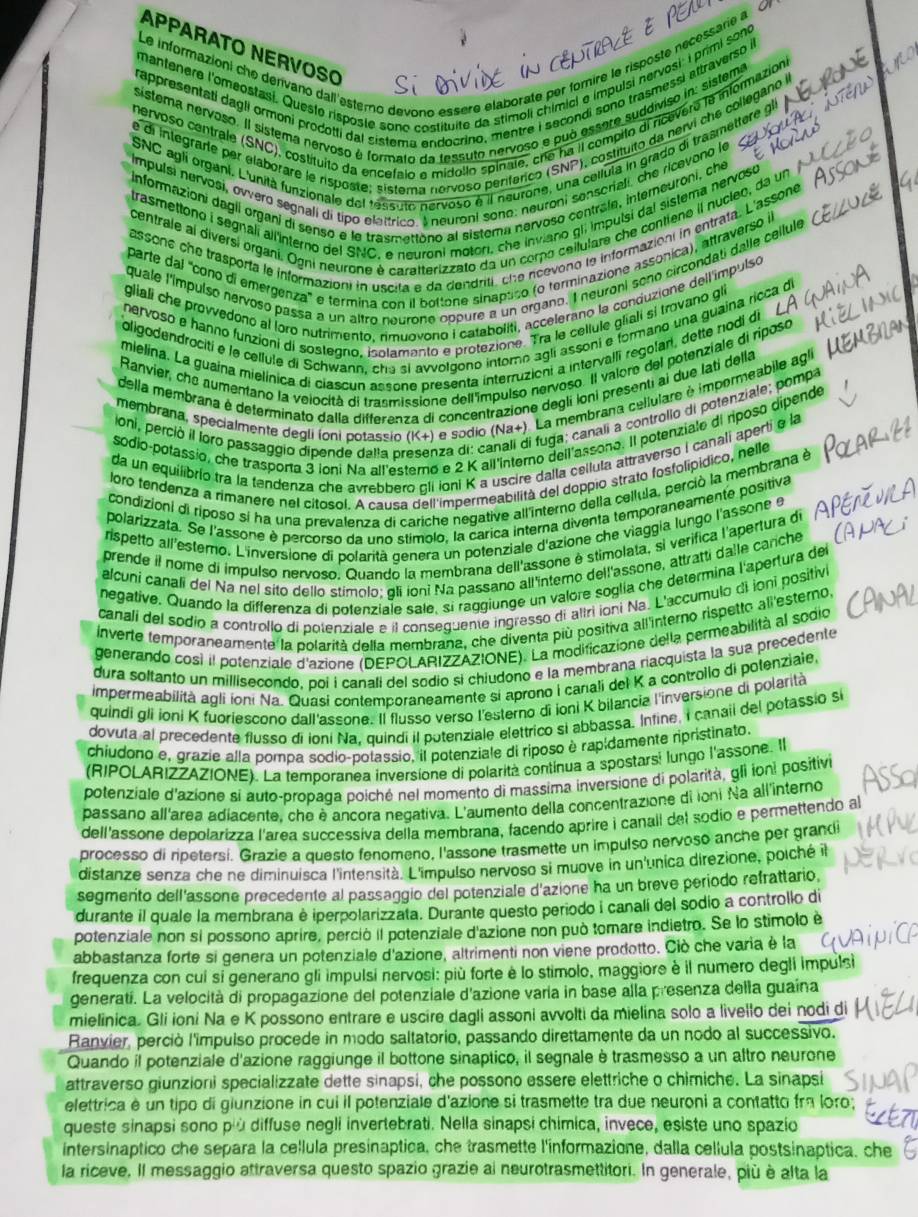 APPARATO NERVOSO
SI DIVIDE IN CENTRALE E
Le informazioni che derivano dall'esterno devono essere elaborate per fornire le risposte necessarie a
mantenere l'omeostasi. Queste risposte sono costituite da stimoli chimici e impulsi nervosi: i primi sono
rappresentati dagli ormoni prodotti dal sistema endocrino, mentre i secondi sono trasmessi attraverso il
sistema nervoso. Il sistema nervoso è formato da tessuto nervoso e può essere suddiviso in: sistema
nervoso centrale (SNC), costituito da encefalo e midollo spinale, che ha il compito di ricevere le informazioni
e di integrarle per elaborare le risposte; sistema nervoso periferico (SNP), costituito da nervi che collegano il
SNC agli organi. L'unità funzionale del tessuto nervoso è il neurone, una cellula in grado di trasmettere gli NEURONE
impulsi nervosi, ovvero segnali di tipo elettrico. I neuroni sono: neuroni sensoriali, che ricevono le
informazioni dagli organi di senso e le trasmettono al sistema nervoso centrale, interneuroni, che
trasmettono i segnali all'interno del SNC, e neuroni motori, che inviano gli impulsi dal sistema nervoso
centrale ai diversi organi. Ogni neurone è caratterizzato da un corpo cellulare che contiene il nucleo, da un NUCLEO
assone che trasporta le informazioni in uscita e da dendriti, che ricevono le informazioni in entrata. L'assone ASSONE
parte dal "cono di emergenza" e termina con il bottone sinaptico (o terminazione assonica), attraverso il
quale l'impulso nervoso passa a un altro neurone oppure a un organo. I neuroni sono circondati dalle cellule CELLULE
gliali che provvedono al loro nutrimento, rimuovono i cataboliti, accelerano la conduzione dell'impulso
nervoso e hanno funzioni di sostegno, isolamento e protezione. Tra le cellule gliali si trovano gli
oligodendrociti e le cellule di Schwann, che si avvolgono intorno agli assoni e formano una guaina ricca di
mielina. La guaina mielinica di ciascun assone presenta interruzioni a intervalli regolari, dette nodi di LA GUAINA
Ranvier, che aumentano la velocità di trasmissione dell'impulso nervoso. Il valore del potenziale di riposo
della membrana è determinato dalla differenza di concentrazione degli ioni presenti ai due lati della
membrana, specialmente degli ioni potassio (K+) e sodio (Na+). La membrana cellulare è impermeabile agli
ioni, perciò il loro passaggio dipende dalla presenza di: canali di fuga; canali a controllo di potenziale; pompa
sodio-potassio, che trasporta 3 ioni Na all'esterno e 2 K all'interno dell'assone. Il potenziale di riposo dipende
da un equilibrio tra la tendenza che avrebbero gli ioni K a uscire dalla cellula attraverso i canali aperti e la
loro tendenza a rimanere nel citosol. A causa dell'impermeabilità del doppio strato fosfolipidico, nelle
condizioni di riposo si ha una prevalenza di cariche negative all'interno della cellula, perciò la membrana è
polarizzata. Se l'assone è percorso da uno stimolo, la carica interna diventa temporaneamente positiva
rispetto all'esterno. L'inversione di polarità genera un potenziale d'azione che viaggia lungo l'assone e
prende il nome di impulso nervoso. Quando la membrana dell'assone è stimolata, si verifica l'apertura di
alcuni canali del Na nel sito dello stimolo; gli ioni Na passano all'interno dell'assone, attratti dalle cariche CANALI
negative. Quando la differenza di potenziale sale, si raggiunge un valore soglia che determina l'apertura dei
canali del sodio a controllo di potenziale e il conseguente ingresso di altri ioni Na. L'accumulo di ioni positivi
inverte temporaneamente la polarità della membrana, che diventa più positiva all'interno rispetto all'esterno,
generando così il potenziale d'azione (DEPOLARIZZAZIONE). La modificazione della permeabilità al sodio
dura soltanto un millisecondo, poi i canali del sodio si chiudono e la membrana riacquista la sua precedente
impermeabilità agli ioni Na. Quasi contemporaneamente si aprono i canali del K a controllo di potenziale,
quindi gli ioni K fuoriescono dall'assone. Il flusso verso l'esterno di ioni K bilancia l'inversione di polarità
dovuta al precedente flusso di ioni Na, quindi il potenziale elettrico si abbassa. Infine, i canali del potassio si
chiudono e, grazie alla pompa sodio-potassio, il potenziale di riposo è rapidamente ripristinato.
(RIPOLARIZZAZIONE). La temporanea inversione di polarità continua a spostarsi lungo l'assone. Il
potenziale d'azione si auto-propaga poiché nel momento di massima inversione di polarità, gli ioni positivi
passano all'area adiacente, che è ancora negativa. L'aumento della concentrazione di ioni Na all'interno
dell'assone depolarizza l'area successiva della membrana, facendo aprire i canali del sodio e permettendo al
processo di ripetersi. Grazie a questo fenomeno, l'assone trasmette un impulso nervoso anche per grandi
distanze senza che ne diminuisca l'intensità. L'impulso nervoso si muove in un'unica direzione, poiché il
segmento dell'assone precedente al passaggio del potenziale d'azione ha un breve periodo refrattario,
durante il quale la membrana è iperpolarizzata. Durante questo periodo i canali del sodio a controllo di
potenziale non si possono aprire, perciò il potenziale d'azione non può tornare indietro. Se lo stimolo è
abbastanza forte si genera un potenziale d'azione, altrimenti non viene prodotto. Ciò che varia è la
frequenza con cui si generano gli impulsi nervosi: più forte è lo stimolo, maggiore è il numero degli impulsi
generati. La velocità di propagazione del potenziale d'azione varia in base alla presenza della guaina
mielinica. Gli ioni Na e K possono entrare e uscire dagli assoni avvolti da mielina solo a livello dei nodi di
Ranvier, perciò l'impulso procede in modo saltatorio, passando direttamente da un nodo al successivo.
Quando il potenziale d'azione raggiunge il bottone sinaptico, il segnale è trasmesso a un altro neurone
attraverso giunzioni specializzate dette sinapsi, che possono essere elettriche o chimiche. La sinapsi
elettrica è un tipo di giunzione in cui il potenziale d'azione si trasmette tra due neuroni a contatto fra loro;
queste sinapsi sono più diffuse negli invertebrati. Nella sinapsi chimica, invece, esiste uno spazio
intersinaptico che separa la cellula presinaptica, che trasmette l'informazione, dalla cellula postsinaptica, che
la riceve. Il messaggio attraversa questo spazio grazie ai neurotrasmettitori. In generale, più è alta la